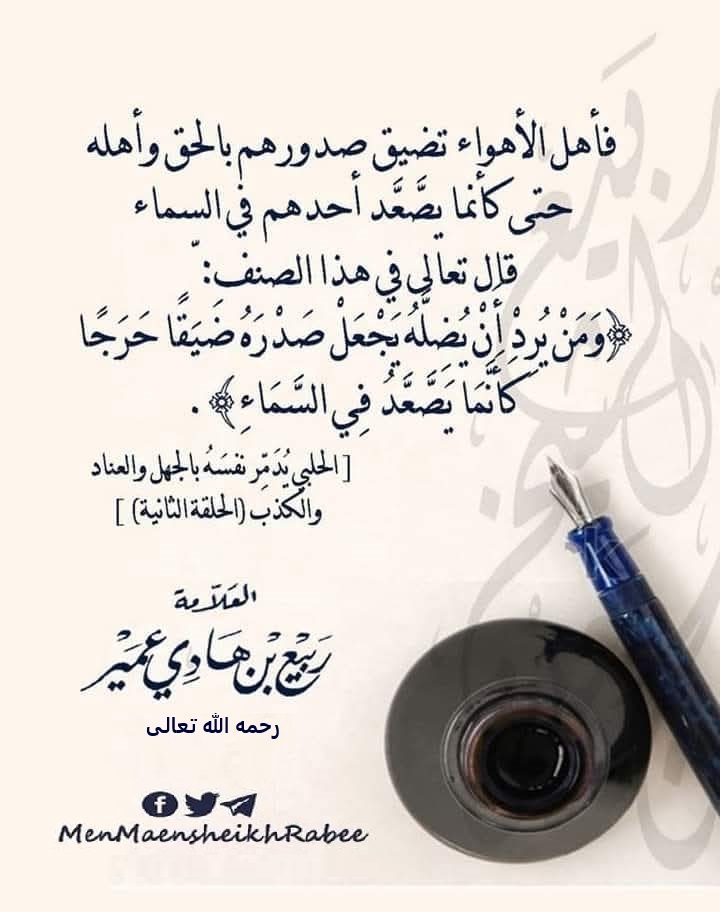 فأهل الأهواء تضيق صدورهم بالحق وأهله
حتى كأنما يصَّعَّد أحدهم في السماء
قال تعالى في هذا الصنف:
﴿وَمَنْ يُرِدْ أَنْ يُضِلَّهُ يَجْعَلْ صَدْرَهُ ضَيِّقًا حَرَجًا
كَأَنَّمَا يَصَّعَّدُ فِي السَّمَاءِ﴾ .
[ الحلبي يُدَمِّر نفسَهُ بالجهل والعناد
والكذب (الحلقة الثانية) ]
العلّامة
رَبِيْع بْن هَادِي عُمَيْر
رحمه الله تعالى
MenMaensheikhRabee